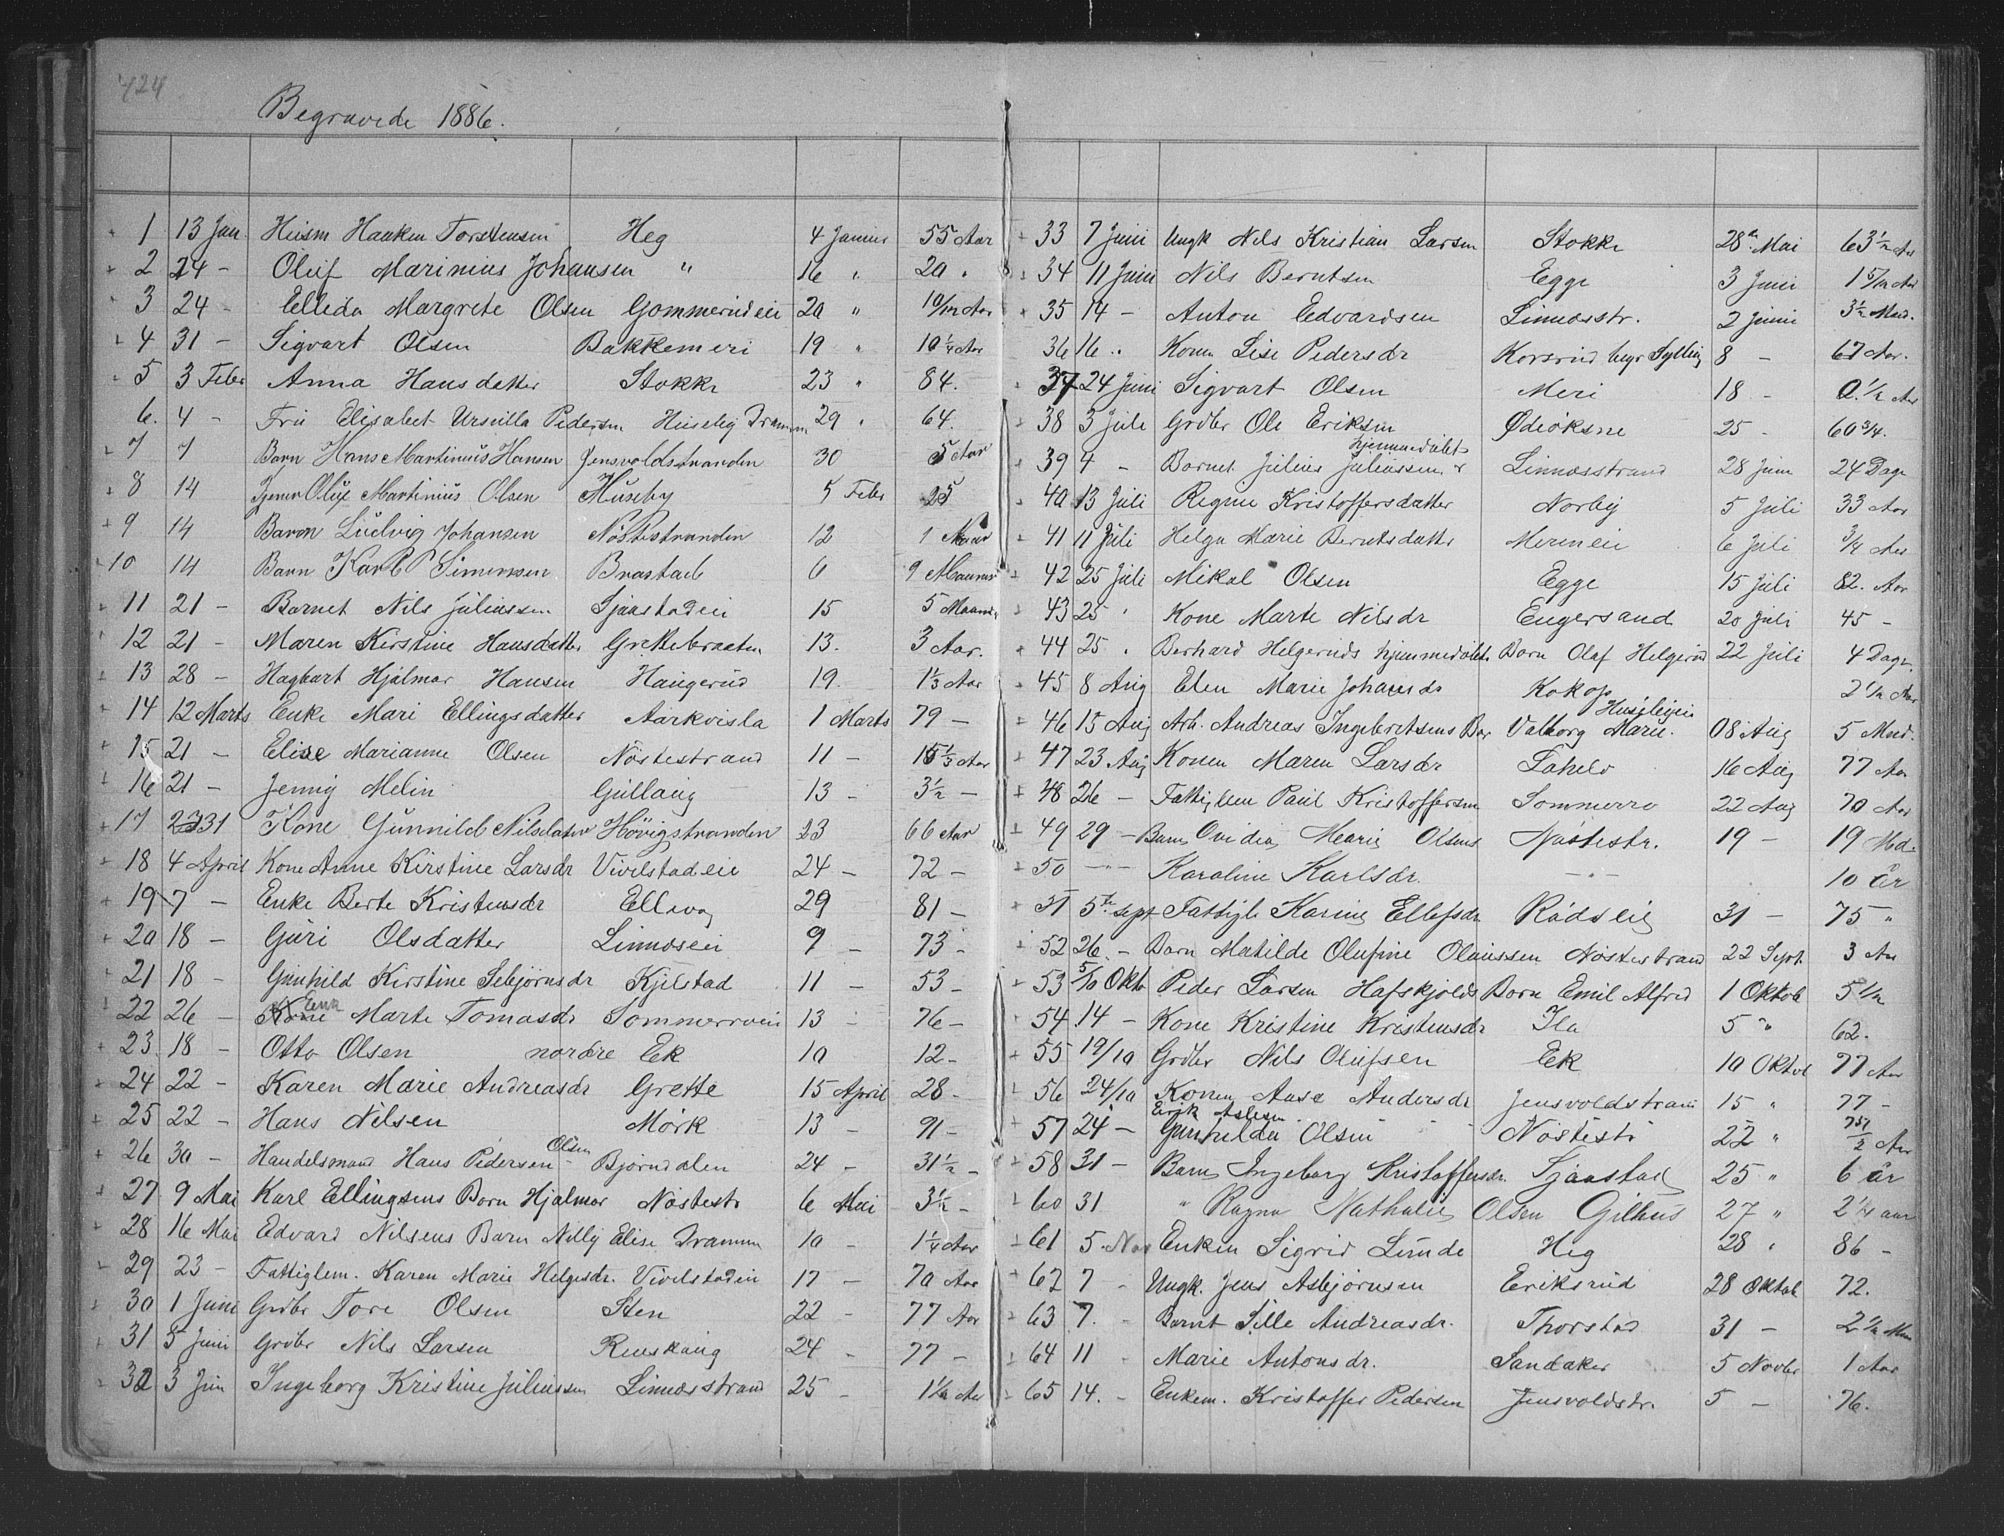 424
Begravede 1886.
1 13 Jan Huusm Haaken Torstensen Heg 4 Januar 55 Aar
2 24 - Oluf Marinius Johansen " 16 " 20 "
3 24 - Elleda Margrete Olsen Gommerudeie 20 " 10/12 Aar
4 31 - Sigvart Olsen Bakkemeri 19 " 10 1/4 Aar
5 3 Febr Anna Hansdatter Stokke 23 " 84.
6. 4 - Fru Elisabet Ursulla Pedersen Huseby Drammen 29 " 64.
7 7 Barn Hans Martinius Hansen Jensvoldstranden 30 5 Aar
8 14 Oluf Martinius Olsen Huseby 5 Febr 25
9 14 Barn Ludvig Johansen Nøstestranden 12 1 Maan
10 14 Barn Karl P Simensen Brastad 6 9 Maaner
11 21 - Barnet Nils Juliussen Sjaastadeie 15 5 Maaned
12 21 - Maren Kirstine Hansdatter Grettebraaten 13. 3 Aar.
13 28 - Hagbart Hjalmar Hansen Haugerud 19. 1 1/3 Aar
14 12 Marts Enke Mari Ellingsdatter Aarkvisla 1 Marts 79 -
15 21 - Elise Marianne Olsen Nøstestrand 11 - 1 1/3 Aar
16 21 - Jenny Melin Gullaug 13 - 3 1/2 -
17 31 Kone Gunnild Nilsdatter Høvigstranden 23 66 Aar
18 4 April Kone Anne Kirstine Larsdr Vivelstadeie 24 - 72 -
19 7 - Enke Berte Kristensdr Ellevog 29 81 -
20 18 - Guri Olsdatter Linnæseie 9 - 73 -
21 18 - Gunhild Kirstine Sebjørnsdr Kjelstad 11 - 53 -
22 26 - Enke Marte Tomasdr Sommerroeie 13 - 76 -
23. 18 - Otto Olsen nordre Ek 10 12 -
24 22 - Karen Marie Andreasdr Grette 15 April 28 -
25 22 - Hans Nilsen Mørk 13 - 91 -
26 30 - Handelsmand Hans Pedersen Olsen Bjørndalen 24 - 31 1/2 -
27 9 Mai Karl Ellingsens Barn Hjalmar Nøstestr 6 Mai 3 1/2 -
28 16 Mai Edvard Nilsens Barn Nilly Elise Dramm 10 - 1 1/4 Aar
29 23 - Fattiglem. Karen Marie Helgesdr. Vivelstadeie 17 - 70 Aar
30 1 Juni Grdbr Tore Olsen Sten 22 - 77 Aar
31 5 Juni Grdbr Nils Larsen Renskaug 24 - 77 -
32 3 Jun Ingeborg Kristine Juliussen Linnæsstrand 25 - 1 1/2 Aar
33 7 Juni Ungk Nils Kristian Larsen Stokke 28de Mai 63 1/2 Aar
34 11 Juni Nils Berntsen Egge 3 Juni 1 5/12 Aar
35 14 - Anton Edvardsen Linnæsstr. 2 Junie 3 1/2 Mnd.
36 16 " Konen Lise Pedersdr Korsrud Sylling 8 - 67 Aar.
37 24 Juni Sigvart Olsen Meri 18 - 0 1/2 Aar
38 3 Juli Grdbr Ole Eriksen Ødeøksne 25 - 60 3/4.
39 4 - Barnet Julius Juliussen hjemmedøbt Linnæsstrand 28 Juni 24 Dage
40 13 Juli Regine Kristoffersdatter Norby 5 Juli 33 Aar
41 11 Juli Helga Marie Berntsdatter Merrieie 6 Juli 3/4 Aar
42 25 Juli Mikal Olsen Egge 15 Juli 82. Aar
43 25 " Kone Marte Nilsdr Engersand 20 Juli 45 -
44 25 " Berhard Helgeruds hjemmedøbte Barn Olaf Helgerud 22 Juli 4 Dage
45 8 Aug Elen Marie Johansdr Kokop 2 1/2 Aar
46 15 Aug Arb. Andreas Ingebretsens Bar Valborg Marie. Husebyeie 08 Aug 5 Mnd.
47 23 Aug Konen Maren Larsdr Lahelo 16 Aug 77 Aar
48 26 - Fattiglem Paul Kristoffersen Sommerro 22 Aug 70 Aar
49 29 - Barn Ovidia Marie Olsens Nøstestr. 19 - 19 Md.
50 -"- Karoline Karlsdr -"- 10 år
51 5te Sept Fattigl. Karine Ellefsdr Rødseie 31 - 75 "
52 26. - Barn Matilde Olufine Olaussen Nøstestrand 22 Sept. 3 Aar
53 5/10 Okto Peder Larsen Hafskjolds Barn Emil Alfred 1 Oktob 5 1/2
54 14 - Kone Kristine Kristensdr Ila 5 " 62.
55 19/10 Grdbr Nils Olufsen Ek 10 Oktob 77 Aar
56 24/10 Konen Aase Andersdr Jensvoldstrand 15 " 77 -
57 24 - Gunhilda Olsen Nøstestr 22 " 1/2 Aar
58 31 - Barn Ingeborg Kristoffersdr. Sjaastad 25 " 6 år
60 31 " Ragna Nathalie Olsen Gilhus 27 " 2 1/4 aar
61 5. Nov Enken Sigrid Lunde Heg 28 " 86 -
62 7 - Ungk. Jens Asbjørnsen Eriksrud 28 Oktob 72.
63 7. - Barnet Sille Andreasdr. Thorstad 31 - 2 1/2 Mnd
64 11 - Marie Antonsdr. Sandaker 5 Novbr 1 Aar
65 14. - Enkem. Kristoffer Pedersen Jensvoldstr. 5 - 76.